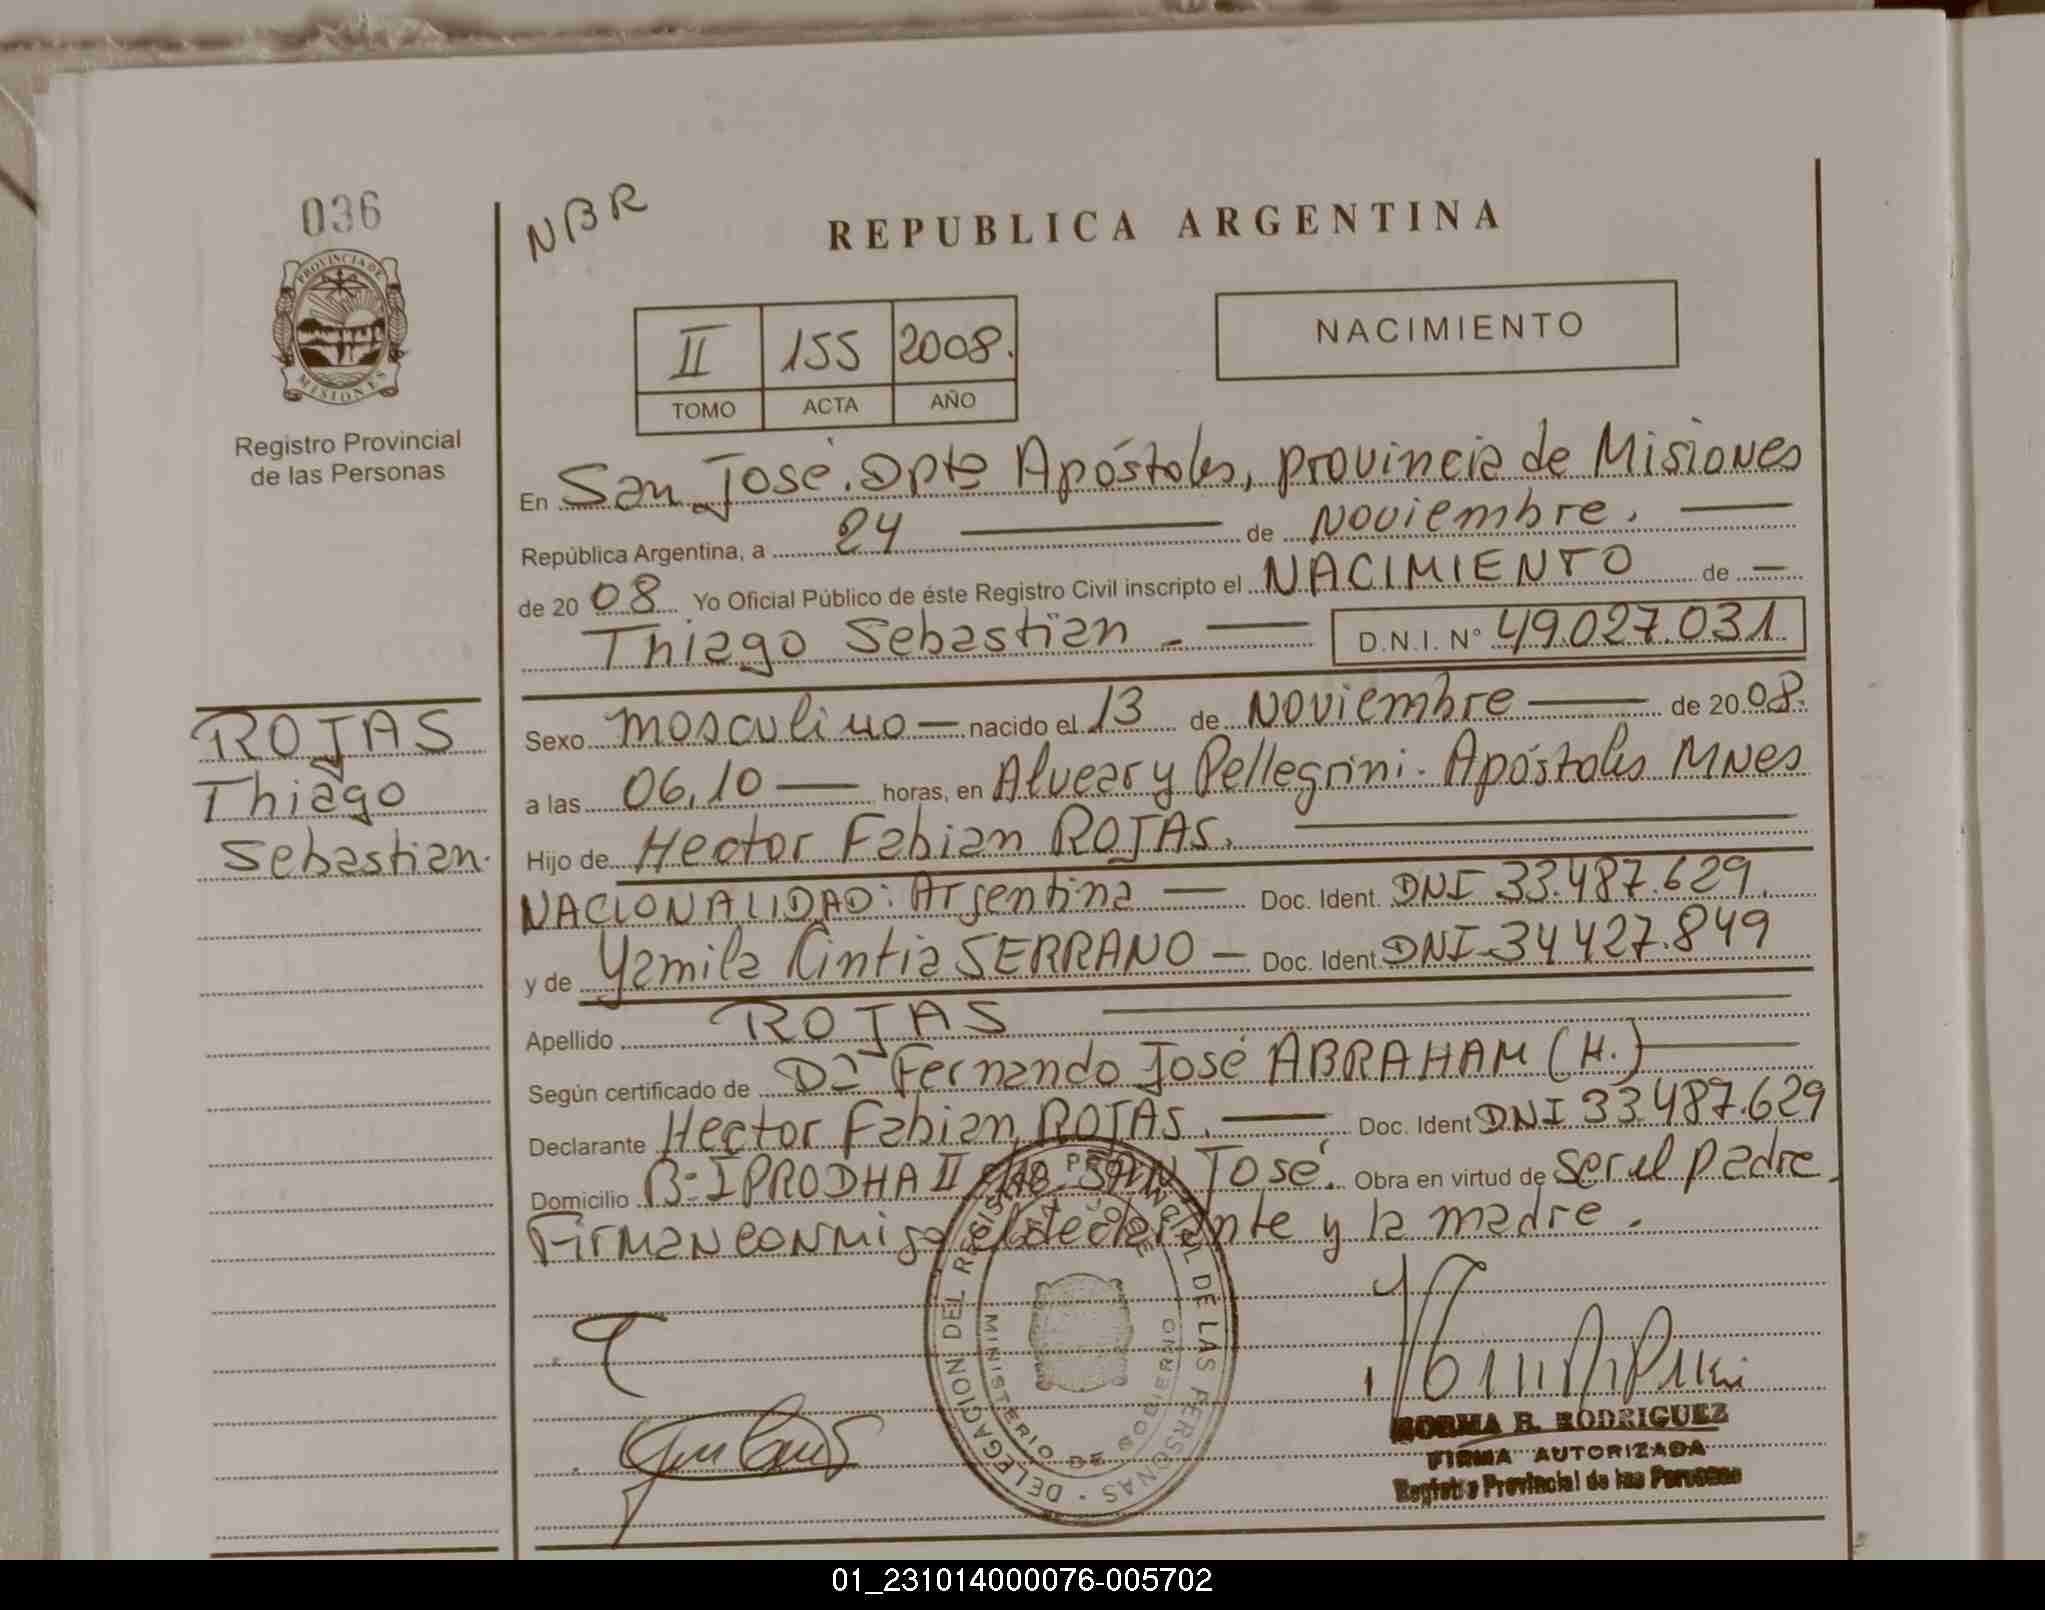 036
PROVINCIA DE
MISIONES
Registro Provincial
de las Personas
NBR
REPUBLICA ARGENTINA
II 155 2008.
TOMO ACTA AÑO
NACIMIENTO
En San José. Dpto Apóstoles, provincia de Misiones
República Argentina, a 24 — de Noviembre. —
de 20 08 Yo Oficial Público de éste Registro Civil inscripto el NACIMIENTO de —
Thiago Sebastian - — D.N.I. N° 49.027.031
ROJAS
Thiago
Sebastian.
Sexo mosculino — nacido el 13 de Noviembre — de 20 08.
a las 06,10 — horas, en Alvear y Pellegrini. Apóstoles MNes
Hijo de Hector Fabian ROJAS. —
NACIONALIDAD: Argentina — Doc. Ident. DNI 33.487.629.
y de Yamila Cintia SERRANO — Doc. Ident. DNI 34 427.849
Apellido ROJAS —
Según certificado de Dr Fernando José ABRAHAM (H.) —
Declarante Hector Fabian ROJAS. — Doc. Ident DNI 33.487.629
Domicilio B: IPRODHA II SAN José. Obra en virtud de ser el padre.
Firman conmigo el declarante y la madre.
DELEGACION DEL REGISTRO PROVINCIAL DE LAS PERSONAS
MINISTERIO DE GOBIERNO
NORMA B. RODRIGUEZ
FIRMA AUTORIZADA
Registro Provincial de las Personas
01_231014000076-005702